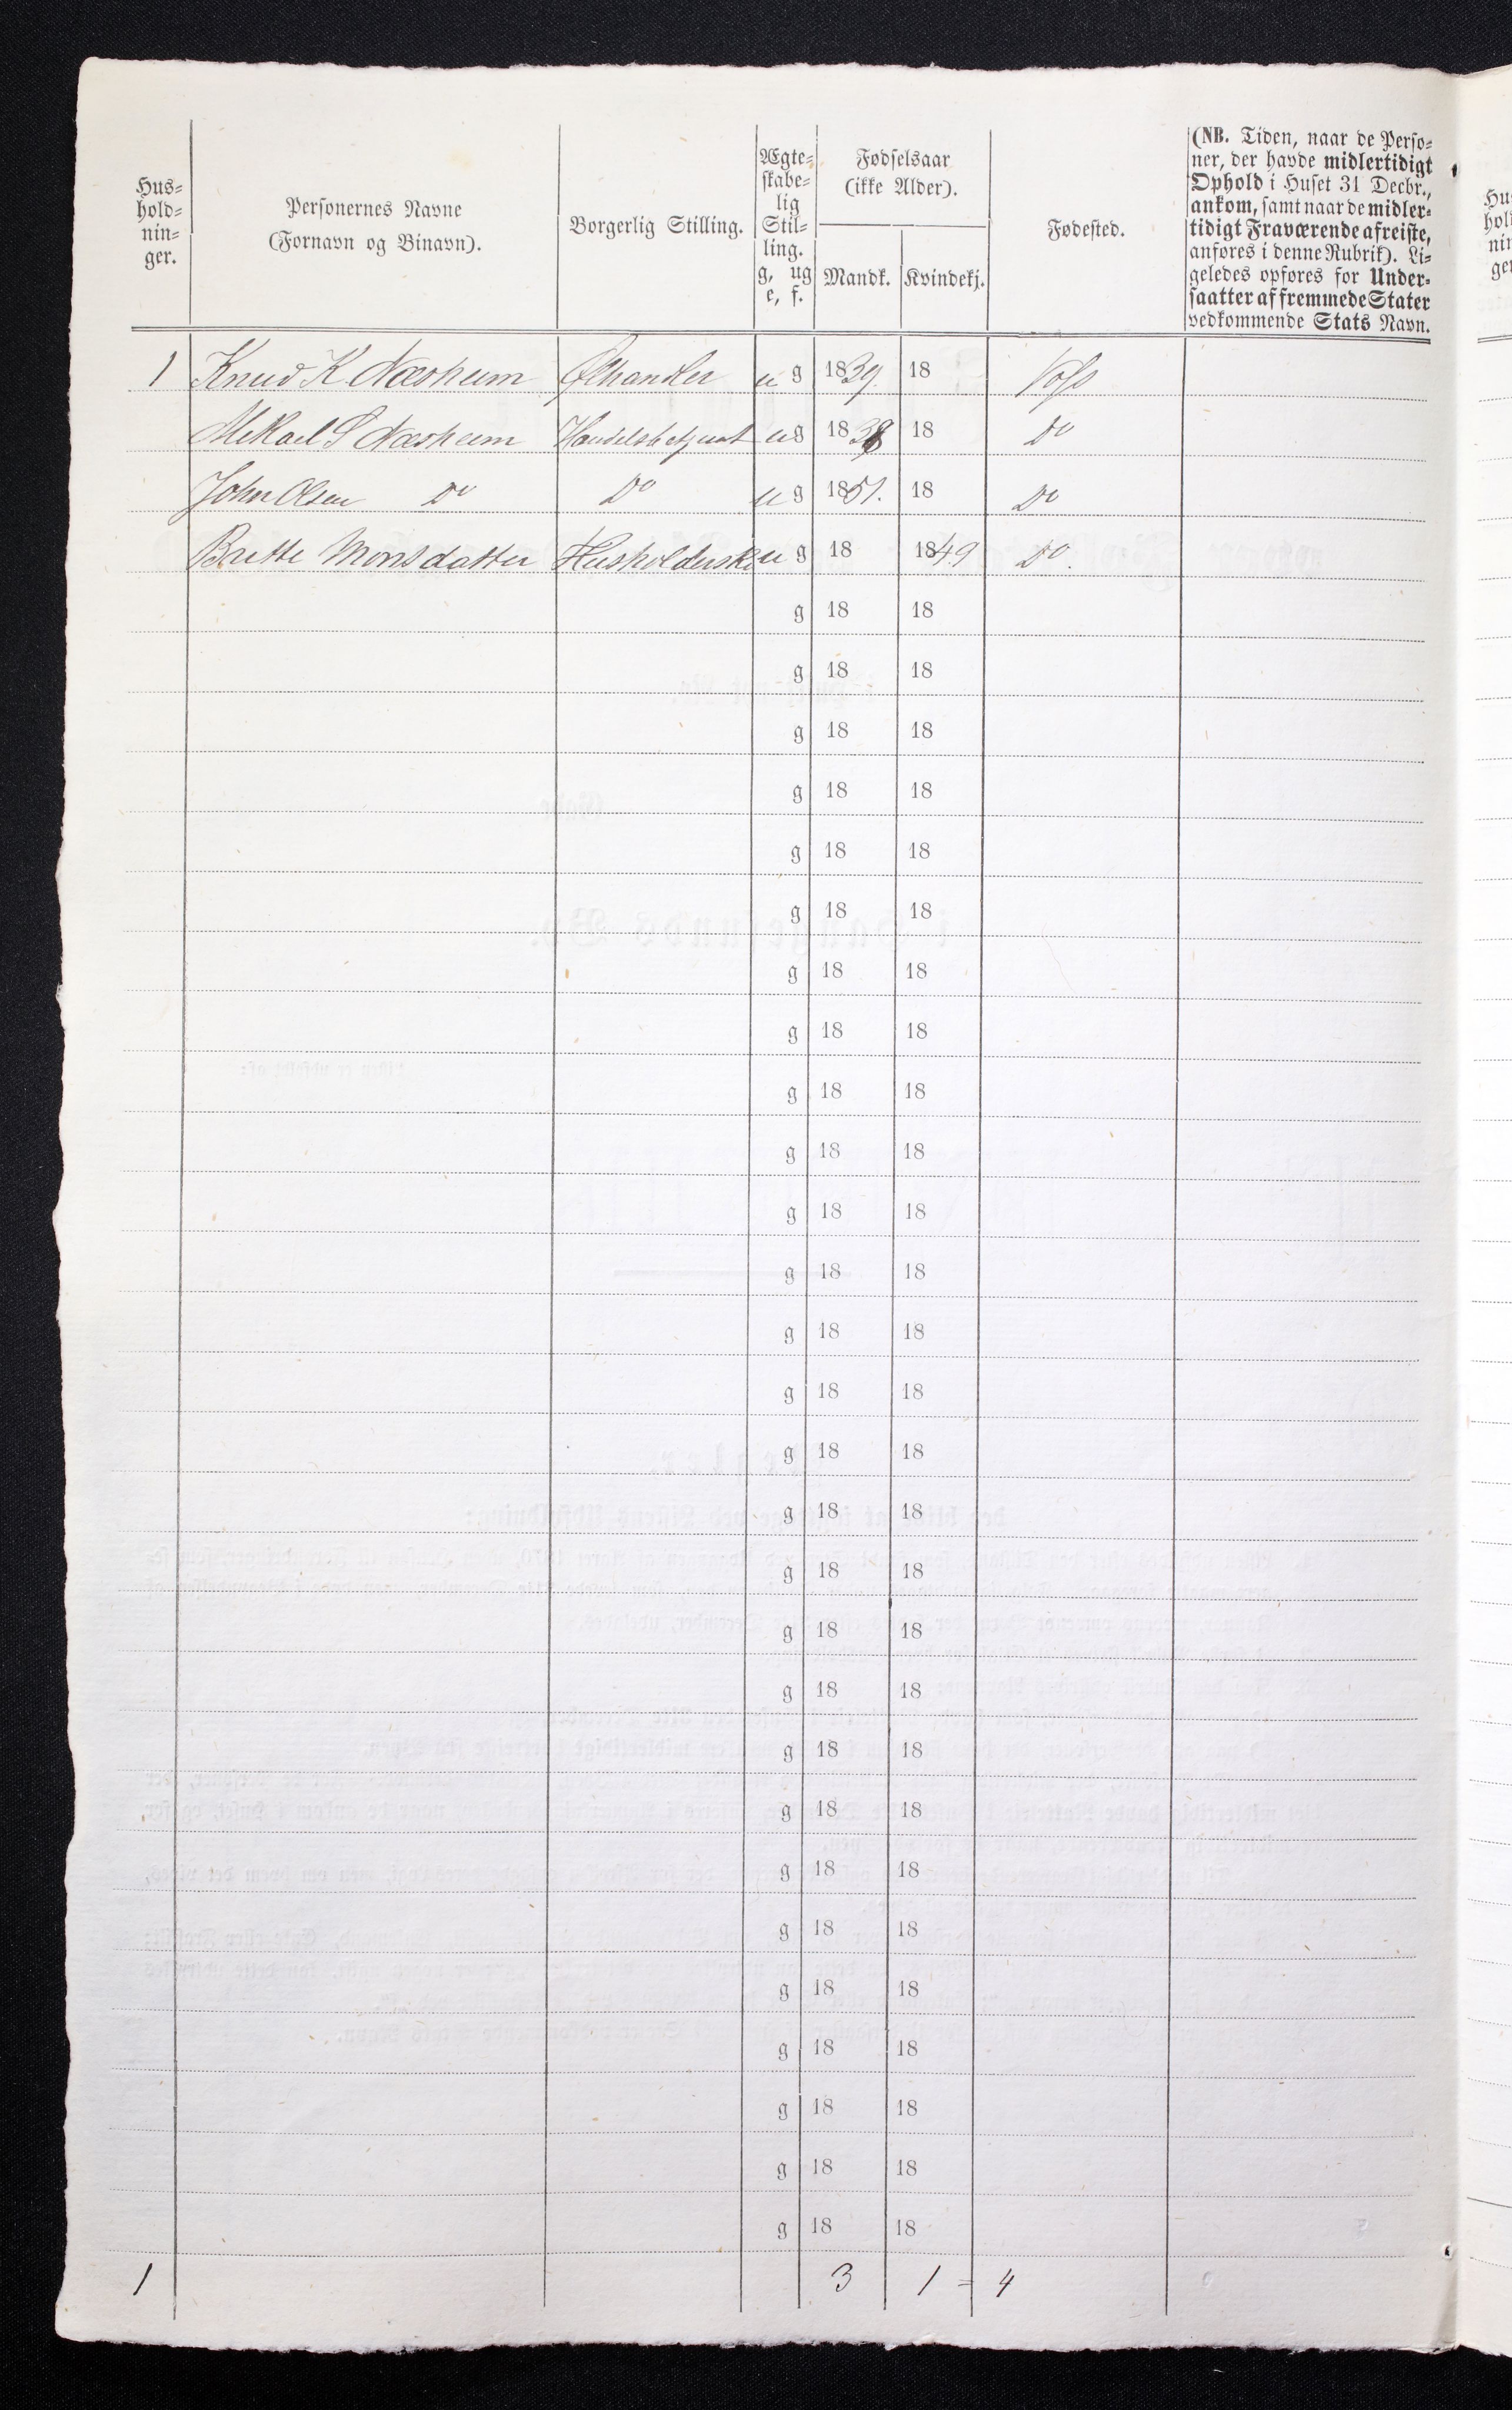 Hus-
hold-
nin-
ger.
Personernes Navne
(Fornavn og Binavn).
Borgerlig Stilling.
Ægte-
skabe-
lig
Stil-
ling.
g, ug
e, f.
Fødselsaar
(ikke Alder).
Mandk. Kvindekj.
Fødested.
(NB. Tiden, naar de Perso-
ner, der havde midlertidigt
Ophold i Huset 31 Decbr.,
ankom, samt naar de midler-
tidigt Fraværende afreiste,
anføres i denne Rubrik). Li-
geledes opføres for Under-
saatter af fremmede Stater
vedkommende Stats Navn.
1 Knud K. Næsheim Ølhandler u g 1839. 18 Voss
Mikael S Næsheim Handelsbetjent u g 1838 18 Do
John Olsen Do Do u g 1851. 18 Do
Britte Monsdatter Husholderske u g 18 1849 Do.
g 18 18
g 18 18
g 18 18
g 18 18
g 18 18
g 18 18
g 18 18
g 18 18
g 18 18
g 18 18
g 18 18
g 18 18
g 18 18
g 18 18
g 18 18
g 18 18
g 18 18
g 18 18
g 18 18
g 18 18
g 18 18
g 18 18
g 18 18
g 18 18
g 18 18
g 18 18
g 18 18
g 18 18
1 3 1 = 4